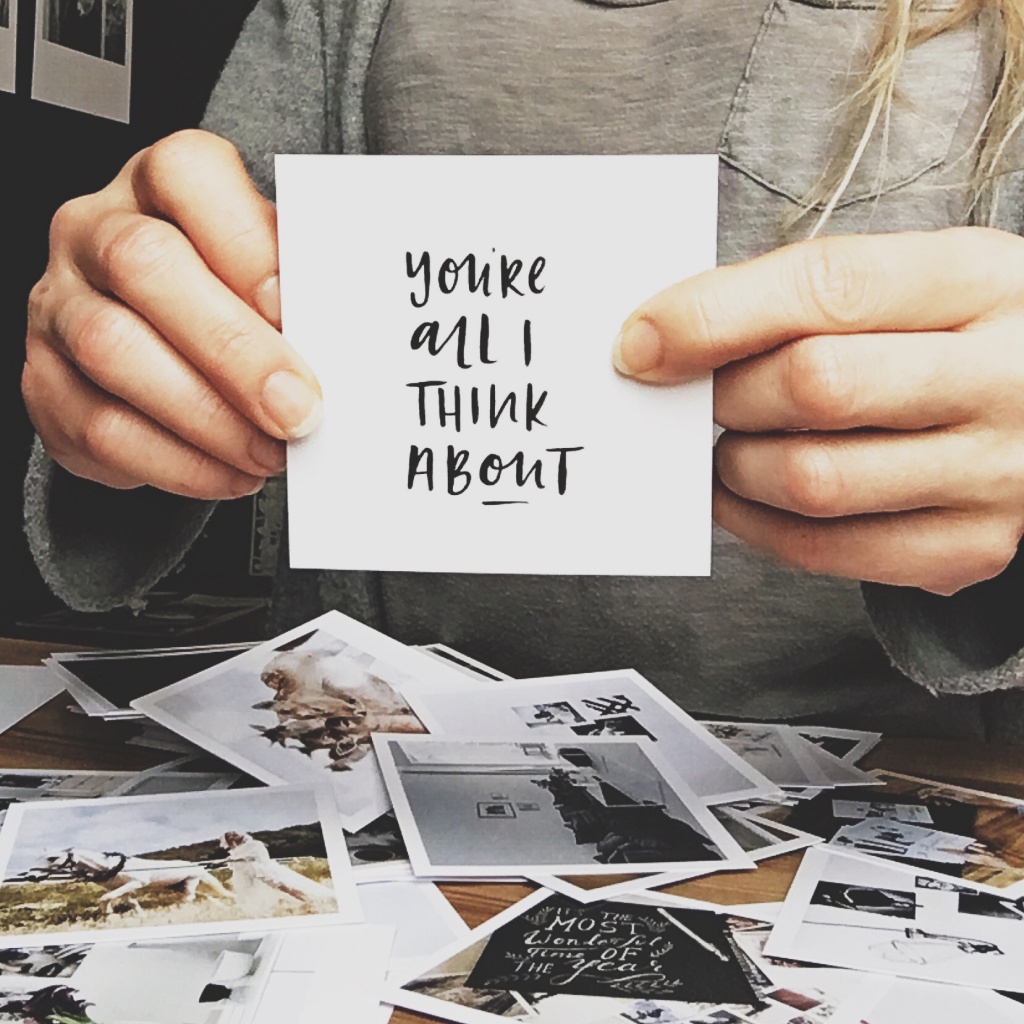 you're
all I
THINK
ABOUT
IT'S THE
MOST
Wonderful
Time OF
THE Year